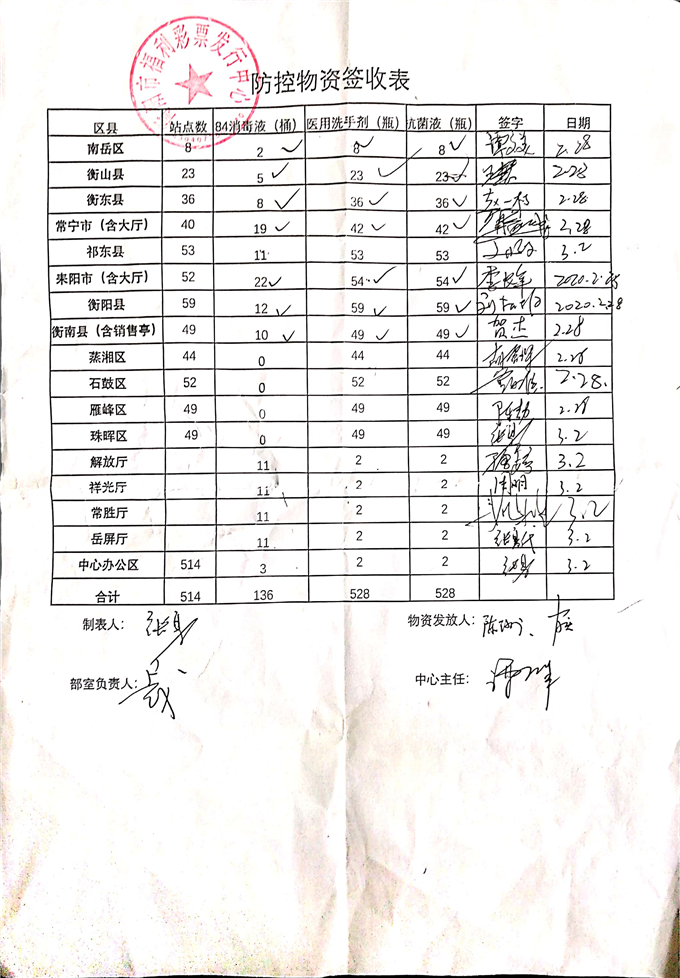 市福利彩票发行中心
防控物资签收表
区县 站点数 84消毒液（桶） 医用洗手剂（瓶） 抗菌液（瓶） 签字 日期
南岳区 8 2 ✓ 8 ✓ 8 ✓ 2.28
衡山县 23 5 ✓ 23 ✓ 23 ✓ 2.28
衡东县 36 8 ✓ 36 ✓ 36 ✓ 2.28
常宁市（含大厅） 40 19 ✓ 42 ✓ 42 ✓ 2.28
祁东县 53 11 53 53 3.2
耒阳市（含大厅） 52 22 ✓ 54 ✓ 54 ✓ 2020.2.28
衡阳县 59 12 ✓ 59 ✓ 59 ✓ 2020.2.28
衡南县（含销售亭） 49 10 ✓ 49 ✓ 49 ✓ 贺杰 2.28
蒸湘区 44 0 44 44 2.28
石鼓区 52 0 52 52 2.28.
雁峰区 49 0 49 49 2.28
珠晖区 49 0 49 49 3.2
解放厅 11 2 2 3.2
祥光厅 11 2 2 3.2
常胜厅 11 2 2 3.2
岳屏厅 11 2 2 3.2
中心办公区 514 3 2 2 3.2
合计 514 136 528 528
制表人： 物资发放人：
部室负责人： 中心主任：